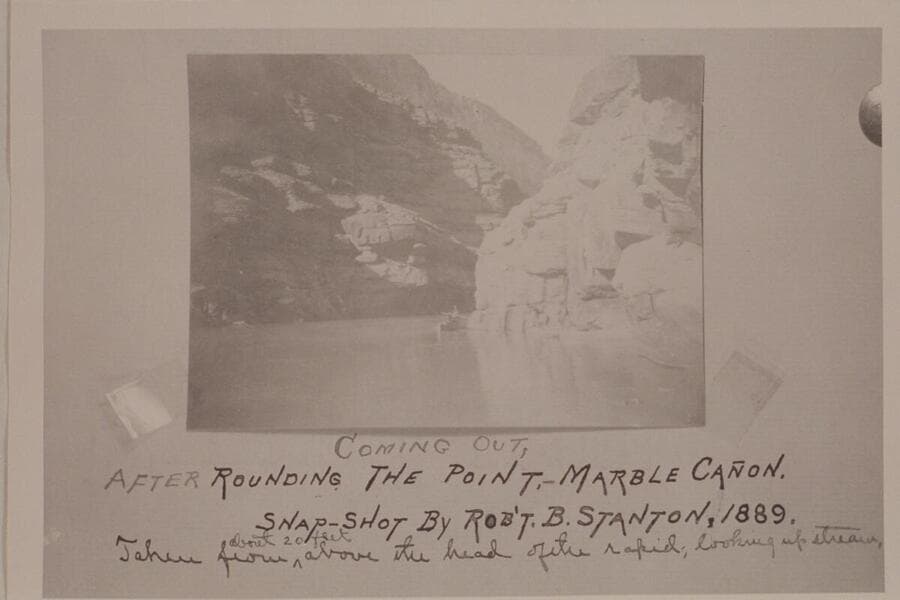 COMING OUT,
AFTER ROUNDING THE POINT,- MARBLE CAÑON.
SNAP-SHOT BY ROB'T. B. STANTON, 1889.
about 20 feet
Taken from ^ above the head of the rapid, looking up stream,